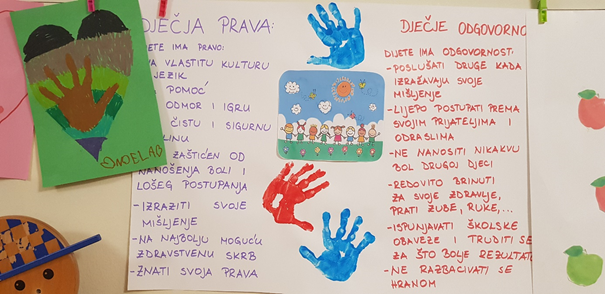 DJEČJA PRAVA:
DIJETE IMA PRAVO:
VLASTITU KULTURU
JEZIK
POMOĆ
ODMOR I IGRU
ČISTU I SIGURNU
ZAŠTIĆEN OD
NANOŠENJA BOLI I
LOŠEG POSTUPANJA
- IZRAZITI SVOJE
MIŠLJENJE
- NA NAJBOLJU MOGUĆU
ZDRAVSTVENU SKRB
- ZNATI SVOJA PRAVA
DJEČJE ODGOVORNO
DIJETE IMA ODGOVORNOST:
- POSLUŠATI DRUGE KADA
IZRAŽAVAJU SVOJE
MIŠLJENJE
- LIJEPO POSTUPATI PREMA
SVOJIM PRIJATELJIMA I
ODRASLIMA
- NE NANOSITI NIKAKVU
BOL DRUGOJ DJECI
- REDOVITO BRINUTI
ZA SVOJE ZDRAVLJE,
PRATI ZUBE, RUKE,...
- ISPUNJAVATI ŠKOLSKE
OBAVEZE I TRUDITI SE
ZA ŠTO BOLJE REZULTATE
- NE RAZBACIVATI SE
HRANOM